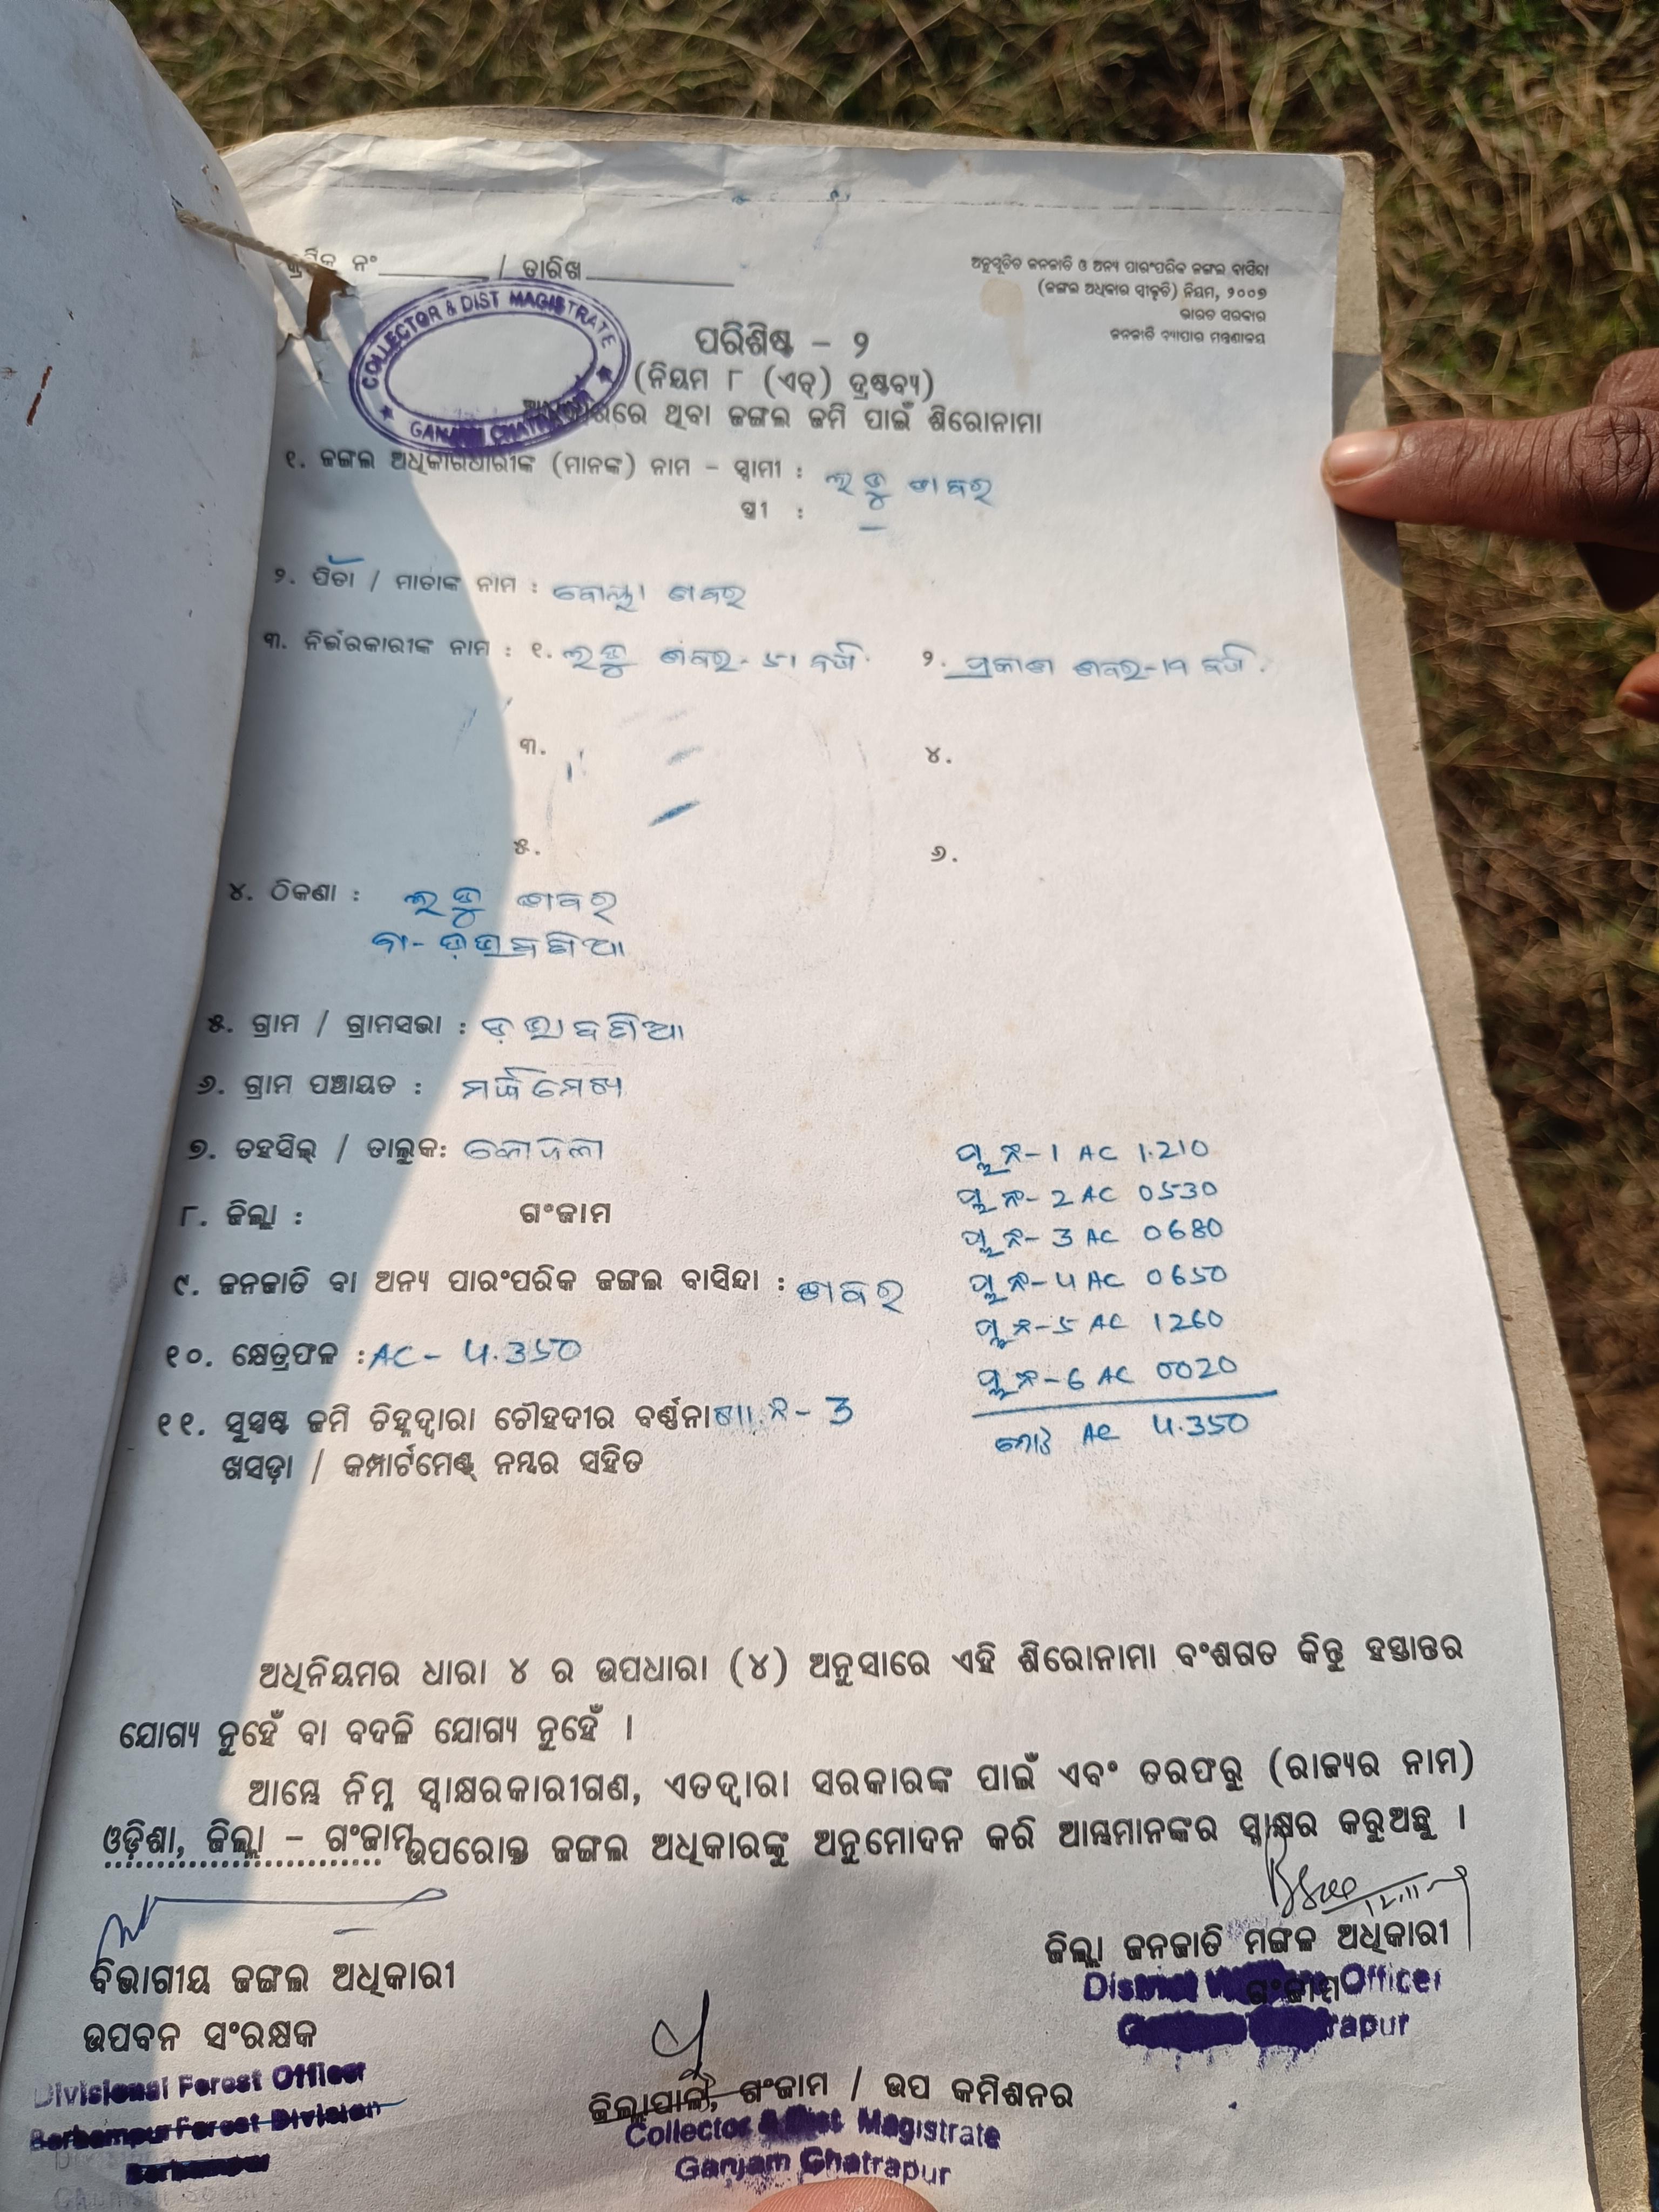 କ୍ରମିକ ନଂ / ତାରିଖ
ଅନୁସୂଚିତ ଜନଜାତି ଓ ଅନ୍ୟ ପାରଂପରିକ ଜଙ୍ଗଲ ବାସିନ୍ଦା
(ଜଙ୍ଗଲ ଅଧିକାର ସ୍ୱୀକୃତି) ନିୟମ, ୨୦୦୭
ଭାରତ ସରକାର
ଜନଜାତି ବ୍ୟାପାର ମନ୍ତ୍ରଣାଳୟ
COLLECTOR & DIST MAGISTRATE
ପରିଶିଷ୍ଟ – ୨
(ନିୟମ ୮ (ଏଚ୍) ଦ୍ରଷ୍ଟବ୍ୟ)
ଥିବା ଜଙ୍ଗଲ ଜମି ପାଇଁ ଶିରୋନାମା
୧. ଜଙ୍ଗଲ ଅଧିକାରଧାରୀଙ୍କ (ମାନଙ୍କ) ନାମ – ସ୍ୱାମୀ : ଲଡୁ ଶବର
ସ୍ତ୍ରୀ : –
୨. ପିତା / ମାତାଙ୍କ ନାମ : ଶବର
୩. ନିର୍ଭରକାରୀଙ୍କ ନାମ : ୧. ଲଡୁ ଶବର- ୨. ପ୍ରକାଶ ଶବର-
୩. ୪.
୫. ୬.
୪. ଠିକଣା : ଲଡୁ ଶବର
୫. ଗ୍ରାମ / ଗ୍ରାମସଭା :
୬. ଗ୍ରାମ ପଞ୍ଚାୟତ :
୭. ତହସିଲ୍ / ତାଲୁକ:
୮. ଜିଲ୍ଲା : ଗଂଜାମ
୯. ଜନଜାତି ବା ଅନ୍ୟ ପାରଂପରିକ ଜଙ୍ଗଲ ବାସିନ୍ଦା : ଶବର
୧୦. କ୍ଷେତ୍ରଫଳ : AC - 4.350
୧୧. ସୁସ୍ପଷ୍ଟ ଜମି ଚିହ୍ନଦ୍ୱାରା ଚୌହଦୀର ବର୍ଣ୍ଣନା ନଂ - 3
ଖସଡ଼ା / କମ୍ପାର୍ଟମେଣ୍ଟ୍ ନମ୍ଭର ସହିତ
ପ୍ଲ ନଂ-1 AC 1.210
ପ୍ଲ ନଂ- 2 AC 0530
ପ୍ଲ ନଂ- 3 AC 0680
ପ୍ଲ ନଂ-4 AC 0650
ପ୍ଲ ନଂ-5 AC 1260
ପ୍ଲ ନଂ-6 AC 0020
ମୋଟ AC 4.350
ଅଧିନିୟମର ଧାରା ୪ ର ଉପଧାରା (୪) ଅନୁସାରେ ଏହି ଶିରୋନାମା ବଂଶଗତ କିନ୍ତୁ ହସ୍ତାନ୍ତର
ଯୋଗ୍ୟ ନୁହେଁ ବା ବଦଳି ଯୋଗ୍ୟ ନୁହେଁ ।
ଆମ୍ଭେ ନିମ୍ନ ସ୍ୱାକ୍ଷରକାରୀଗଣ, ଏତଦ୍ୱାରା ସରକାରଙ୍କ ପାଇଁ ଏବଂ ତରଫରୁ (ରାଜ୍ୟର ନାମ)
ଓଡ଼ିଶା, ଜିଲ୍ଲା – ଗଂଜାମ ଉପରୋକ୍ତ ଜଙ୍ଗଲ ଅଧିକାରଙ୍କୁ ଅନୁମୋଦନ କରି ଆମ୍ଭମାନଙ୍କର ସ୍ୱାକ୍ଷର କରୁଅଛୁ ।
ଜିଲ୍ଲା ଜନଜାତି ମଙ୍ଗଳ ଅଧିକାରୀ
ଗଂଜାମ
District Officer
ବିଭାଗୀୟ ଜଙ୍ଗଲ ଅଧିକାରୀ
ଉପବନ ସଂରକ୍ଷକ
Divisional Forest Officer
Berhampur Forest Division
Berhampur
ଜିଲ୍ଲାପାଳ, ଗଂଜାମ / ଉପ କମିଶନର
Collector & Dist. Magistrate
Ganjam Chatrapur